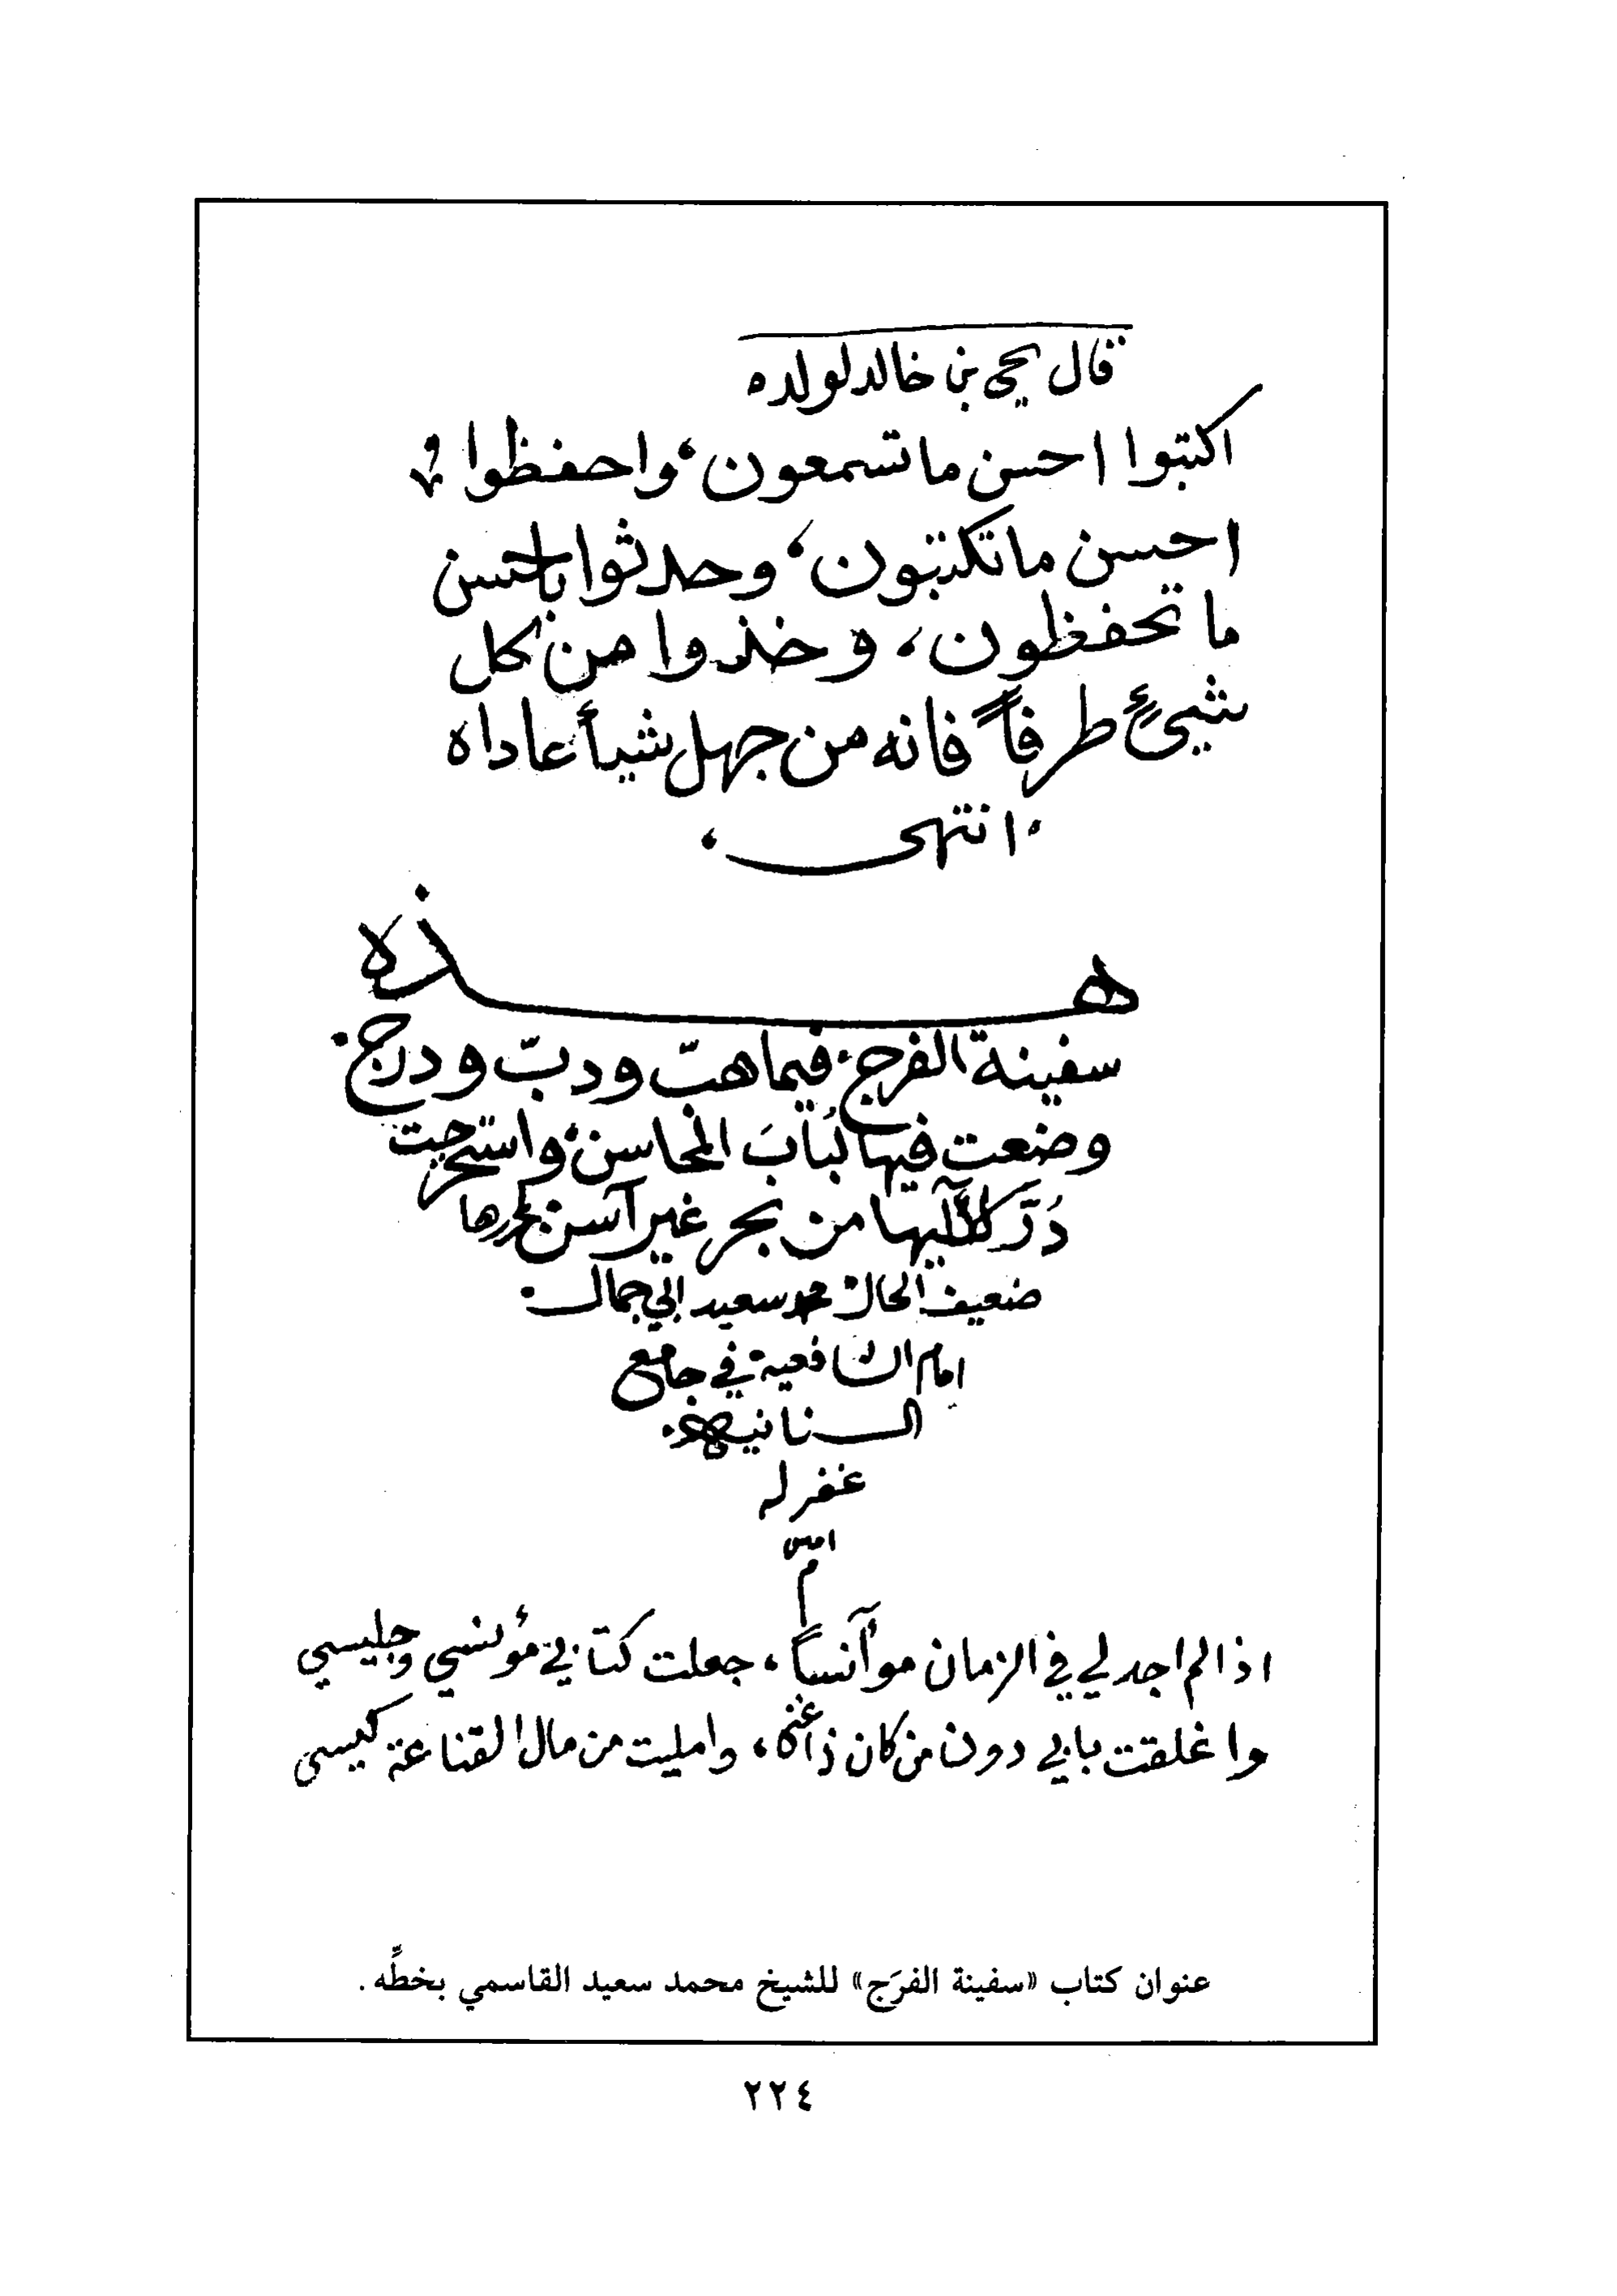 قال يحيى بن خالد لولده
اكتبوا احسن ما تسمعون، واحفظوا
احسن ما تكتبون، وحدثوا باحسن
ما تحفظون، وخذوا من كل
شيئٍ طرفاً فانه من جهل شيأ عاداه
انتهى
هذه
سفينة الفرج، فيما هبّ ودبّ ودرج.
وضعت فيها لُبابَ المحاسن، واستخرجت
دُرَّ لآليها من بحر غير آسن، محررها
ضعيف الحال محمد سعيد ابي جمال.
امام الشافعية في جامع
السنانيه
غفر له
امين
م
اذا لم اجد لي في الزمان موآنساً، جعلت كتابي مؤنسي وجليسي
واغلقت بابي دون من كان ذا غنى، وامليت من مال القناعة كيسي
عنوان كتاب «سفينة الفرَج» للشيخ محمد سعيد القاسمي بخطِّه.
٢٢٤